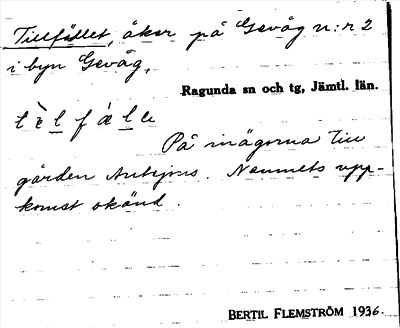 Tillfället, åker på Gevåg n:r 2
i byn Gevåg,
Ragunda sn och tg, Jämtl. län.
På inägorna till
gården . Namnets upp-
komst okänd.
BERTIL FLEMSTRÖM 1936.